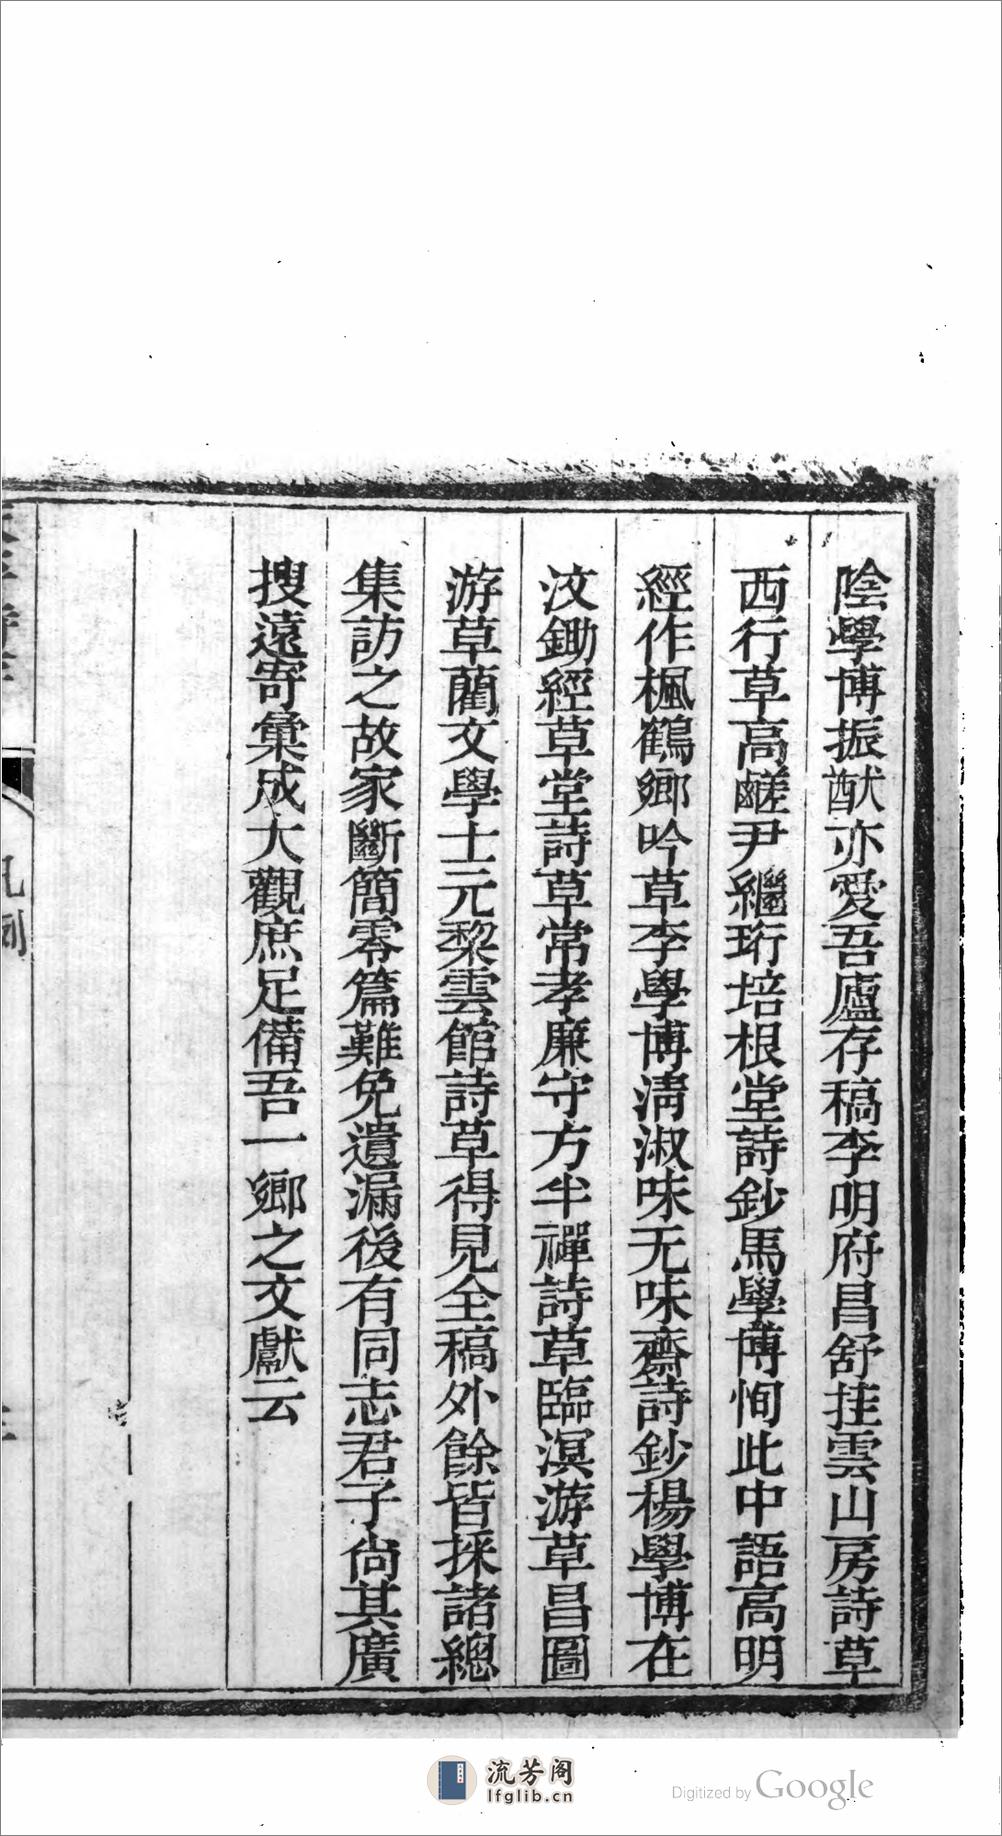 陰學博振猷亦愛吾廬存稿李明府昌舒挂雲山房詩草
西行草高鹺尹繼珩培根堂詩鈔馬學博恂此中語高明
經作楓鶴鄉吟草李學博淸淑味无味齋詩鈔楊學博在
汶鋤經草堂詩草常孝廉守方半禪詩草臨溟游草昌圖
游草藺文學士元棃雲館詩草得見全稿外餘皆採諸總
集訪之故家斷簡零篇難免遺漏後有同志君子尙其廣
搜遠寄彙成大觀庶足備吾一鄉之文獻云
凡例
流芳阁
lfglib.cn
Digitized by Google